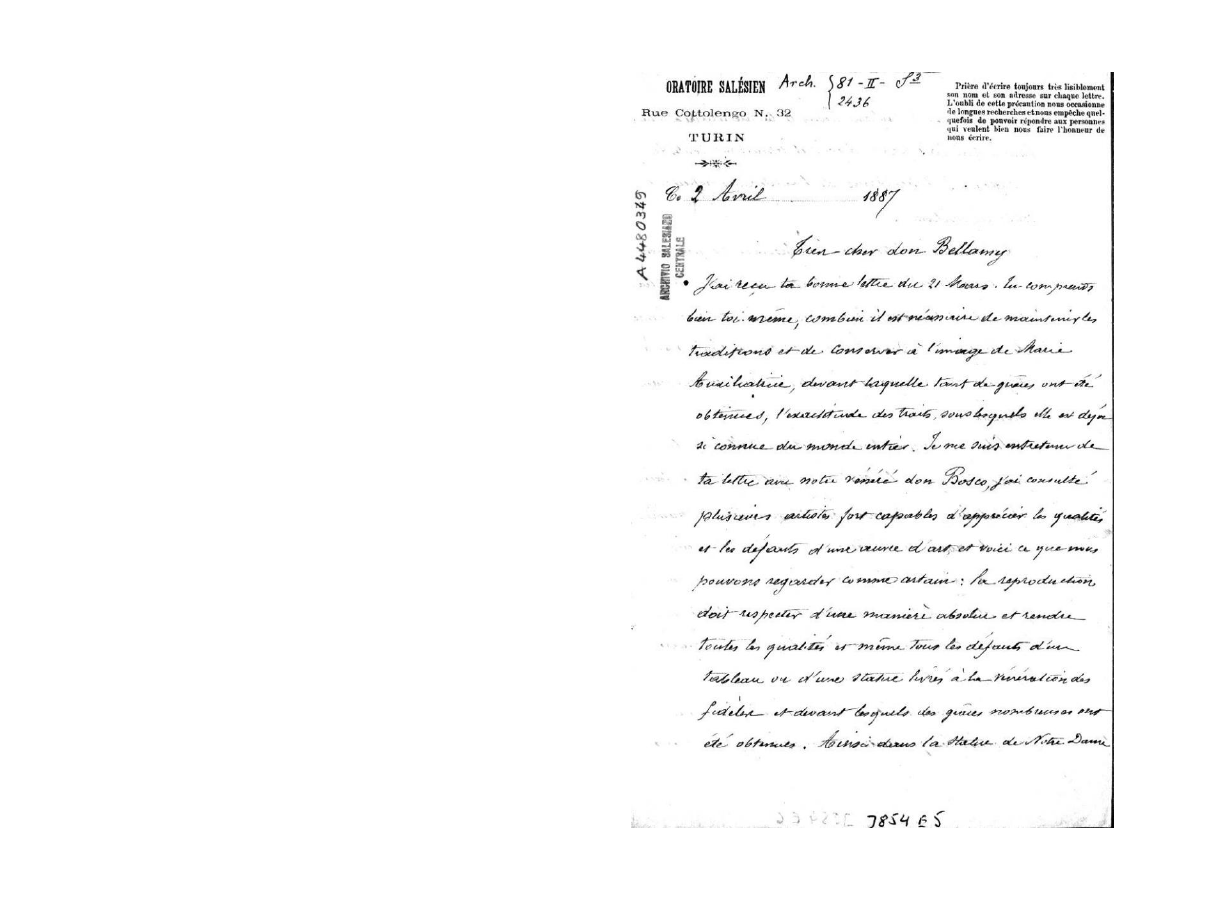 ORATOIRE SALÉSIEN
Rue Cottolengo N. 32
TURIN
Arch. {81-II- S3
2436
Prière d'écrire toujours très lisiblement
son nom et son adresse sur chaque lettre.
L'oubli de cette précaution nous occasionne
de longues recherches et nous empêche quel-
quefois de pouvoir répondre aux personnes
qui veulent bien nous faire l'honneur de
nous écrire.
2 Avril 1887
A4480349
ARCHIVIO SALESIANO
CENTRALE
Bien-cher don Bellamy
J'ai reçu ta bonne lettre du 21 Mars. Tu comprends
bien toi-même, combien il est nécessaire de maintenir les
traditions et de conserver à l'image de Marie
Auxiliatrice, devant laquelle tant de grâces ont été
obtenues, l'exactitude des traits, sous lesquels elle est déjà
si connue du monde entier. Je me suis entretenu de
ta lettre avec notre vénéré don Bosco, j'ai consulté
plusieurs artistes fort capables d'apprécier les qualités
et les défauts d'une œuvre d'art, et voici ce que nous
pouvons regarder comme certain : la reproduction
doit respecter d'une manière absolue et rendre
toutes les qualités et même tous les défauts d'un
tableau ou d'une statue livrés à la vénération des
fidèles et devant lesquels des grâces nombreuses ont
été obtenues. Ainsi dans la statue de Notre Dame
7854 E 5